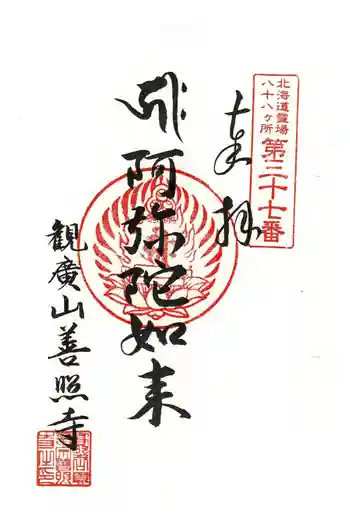 北海道霊場
八十八ヶ所
第二十七番
奉拝
阿弥陀如来
観廣山善照寺